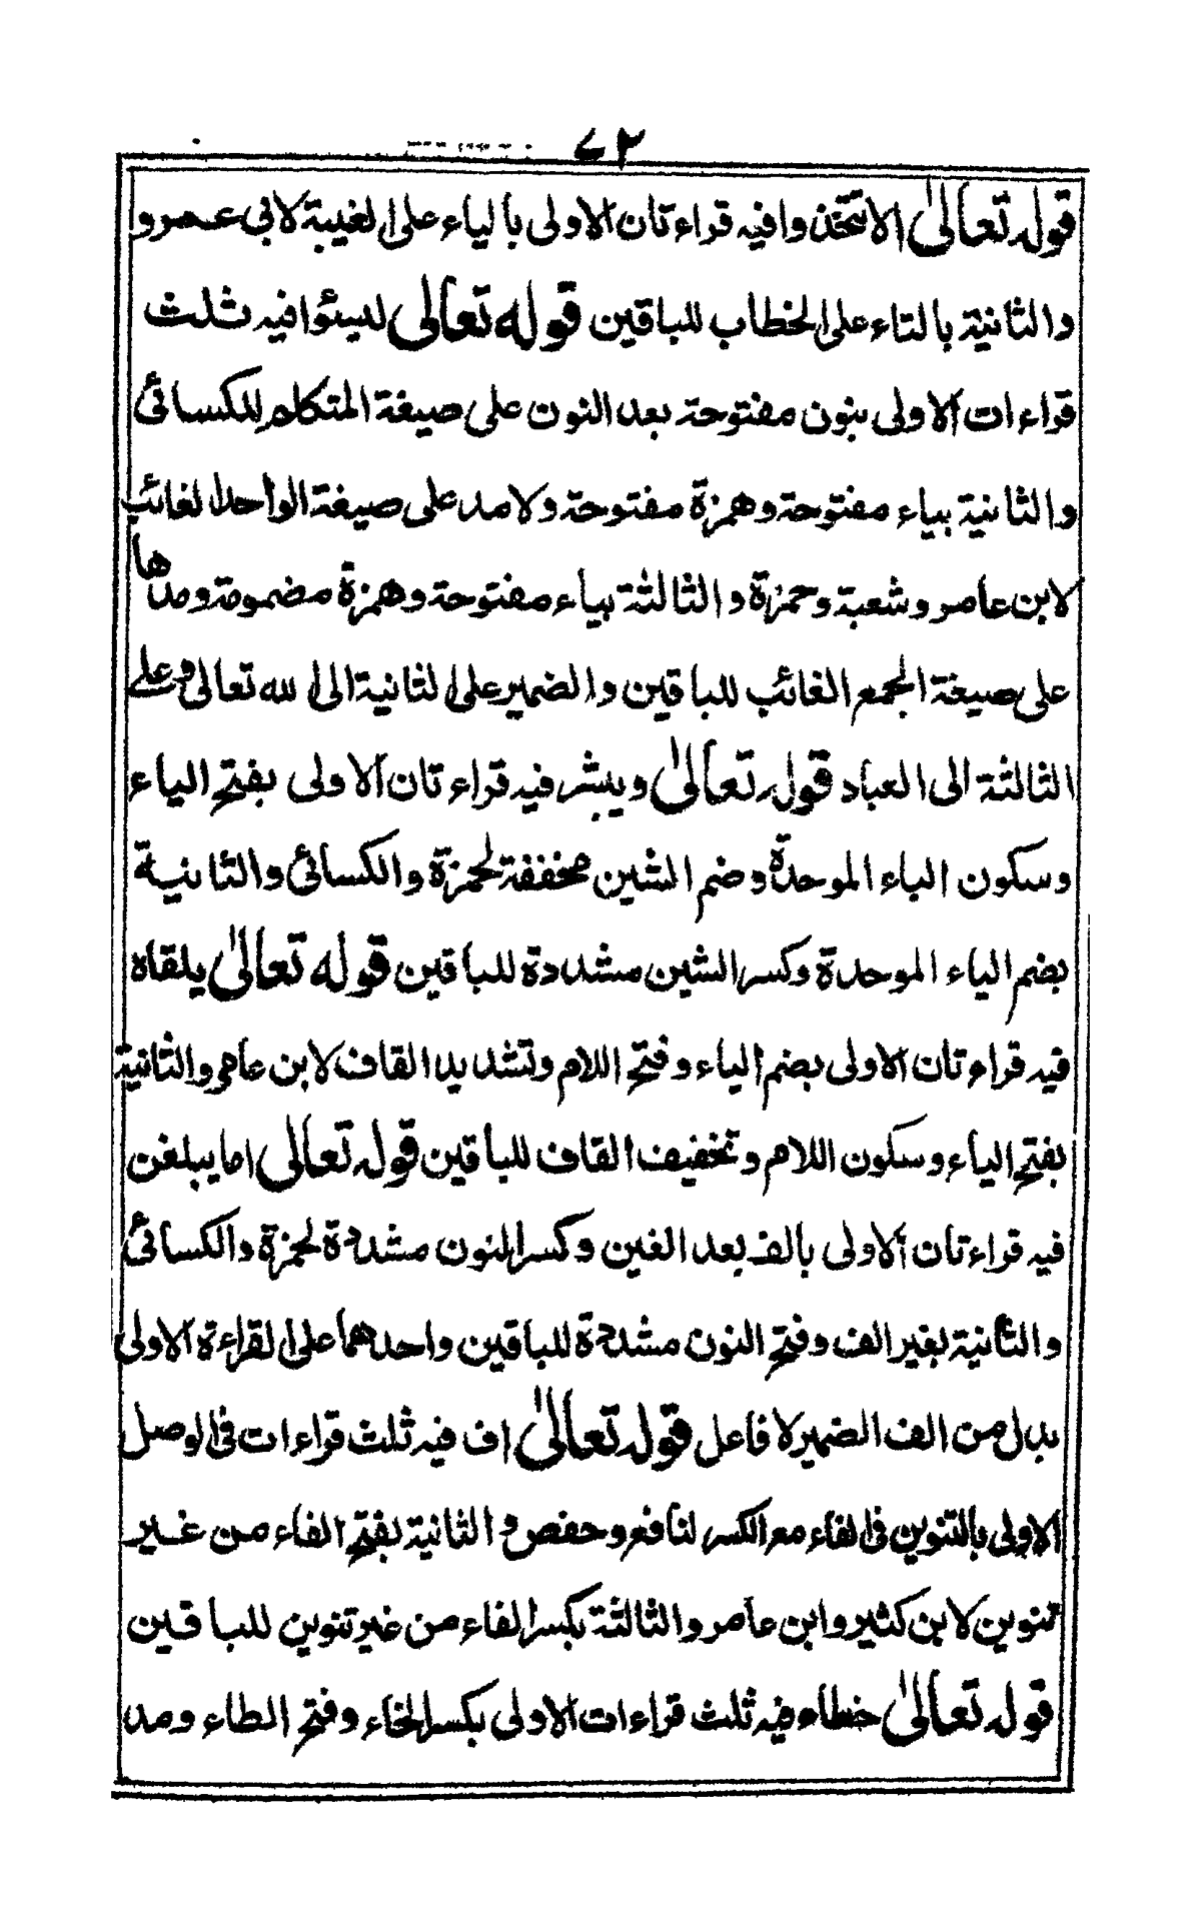 ٧٢
قوله تعالىٰ الا تتخذوا فيه قراءتان الاولى بالياء على الغيبة لابى عمرو
والثانية بالتاء على الخطاب للباقين قوله تعالى ليسئوا فيه ثلث
قراءات الاولى بنون مفتوحة بعد النون على صيغة المتكلم للكسائى
والثانية بياء مفتوحة وهمزة مفتوحة ولا مد على صيغة الواحد الغائب
لابن عامر وشعبة وحمزة والثالثة بياء مفتوحة وهمزة مضمومة ومدها
على صيغة الجمع الغائب للباقين والضمير على الثانية الى الله تعالى وعلى
الثالثة الى العباد قوله تعالىٰ ويبشر فيه قراءتان الاولى بفتح الياء
وسكون الباء الموحدة وضم الشين مخففة لحمزة والكسائى والثانية
بضم الياء الموحدة وكسر الشين مشددة للباقين قوله تعالىٰ يلقاه
فيه قراءتان الاولى بضم الياء وفتح اللام وتشديد القاف لابن عامر والثانية
بفتح الياء وسكون اللام وتخفيف القاف للباقين قوله تعالى اما يبلغن
فيه قراءتان الاولى بالف بعد الغين وكسر النون مشددة لحمزة والكسائى
والثانية بغير الف وفتح النون مشددة للباقين واحدهما على القراءة الاولى
بدل من الف الضمير لا فاعل قوله تعالىٰ اف فيه ثلث قراءات فى الوصل
الاولى بالتنوين فى الفاء مع الكسر لنافع وحفص والثانية بفتح الفاء من غير
تنوين لابن كثير وابن عامر والثالثة بكسر الفاء من غير تنوين للباقين
قوله تعالىٰ خطاء فيه ثلث قراءات الاولى بكسر الخاء وفتح الطاء ومد